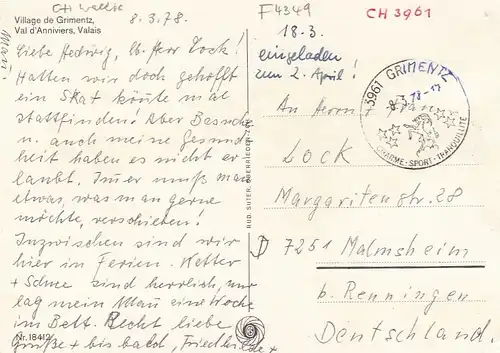 CH Wallis
Village de Grimentz,
Val d'Anniviers, Valais
8.3.78.
F4349
CH 3961
18.3.
eingeladen
zum 2. April!
Liebe Hedwig, lb. Herr Lock!
Hatten wir doch gehofft
ein Skat könnte mal
stattfinden! Aber Besuche
u. auch meine Gesund-
heit haben es nicht er-
laubt. Immer muß man
etwas, was man gerne
möchte, verschieben!
Inzwischen sind wir
hier in Ferien. Wetter
+ Schnee sind herrlich, nur
lag mein Mann eine Woche
im Bett. Recht liebe
Grüße + bis bald, Friedhilde +
Nr. 18412
RUD. SUTER, OBERRIEDEN-ZCH
3961 GRIMENTZ
CHARME - SPORT - TRANQUILLITÉ
An Herrn + Frau
Lock
Margaritenstr. 28
D 7251 Malmsheim
b. Renningen
Deutschland.